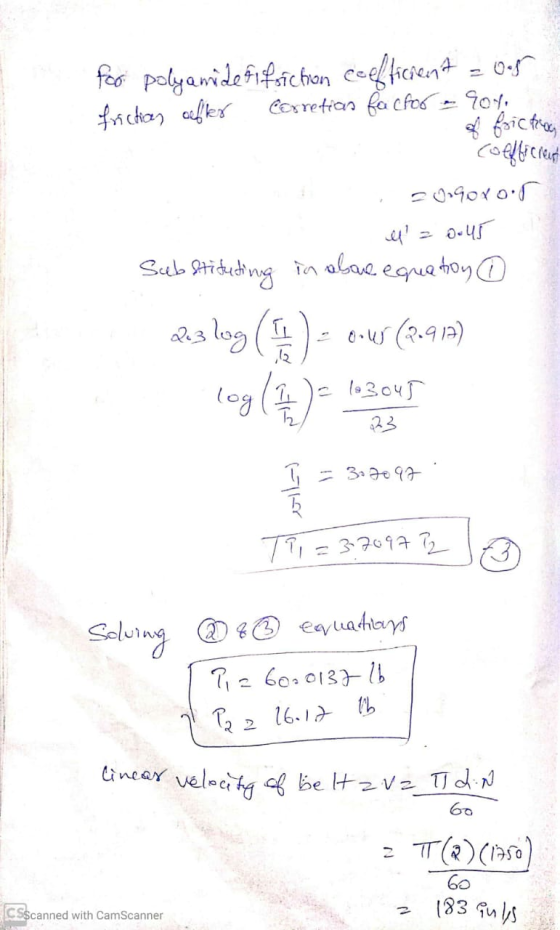 for polyamide friction coefficient = 0.5
friction after correction factor = 90%
of friction
coefficient
= 0.90 x 0.5
μ' = 0.45
Substituting in above equation ①
2.3 log (T1/T2) = 0.45 (2.917)
log (T1/T2) = 1.3045/23
T1/T2 = 3.7097
T1 = 3.7097 T2 -③
Solving ② & ③ equations
T1 = 60.0137 lb
T2 = 16.17 lb
linear velocity of belt = V = πd.N/60
= π(2)(1750)/60
= 183 in/s
CS Scanned with CamScanner